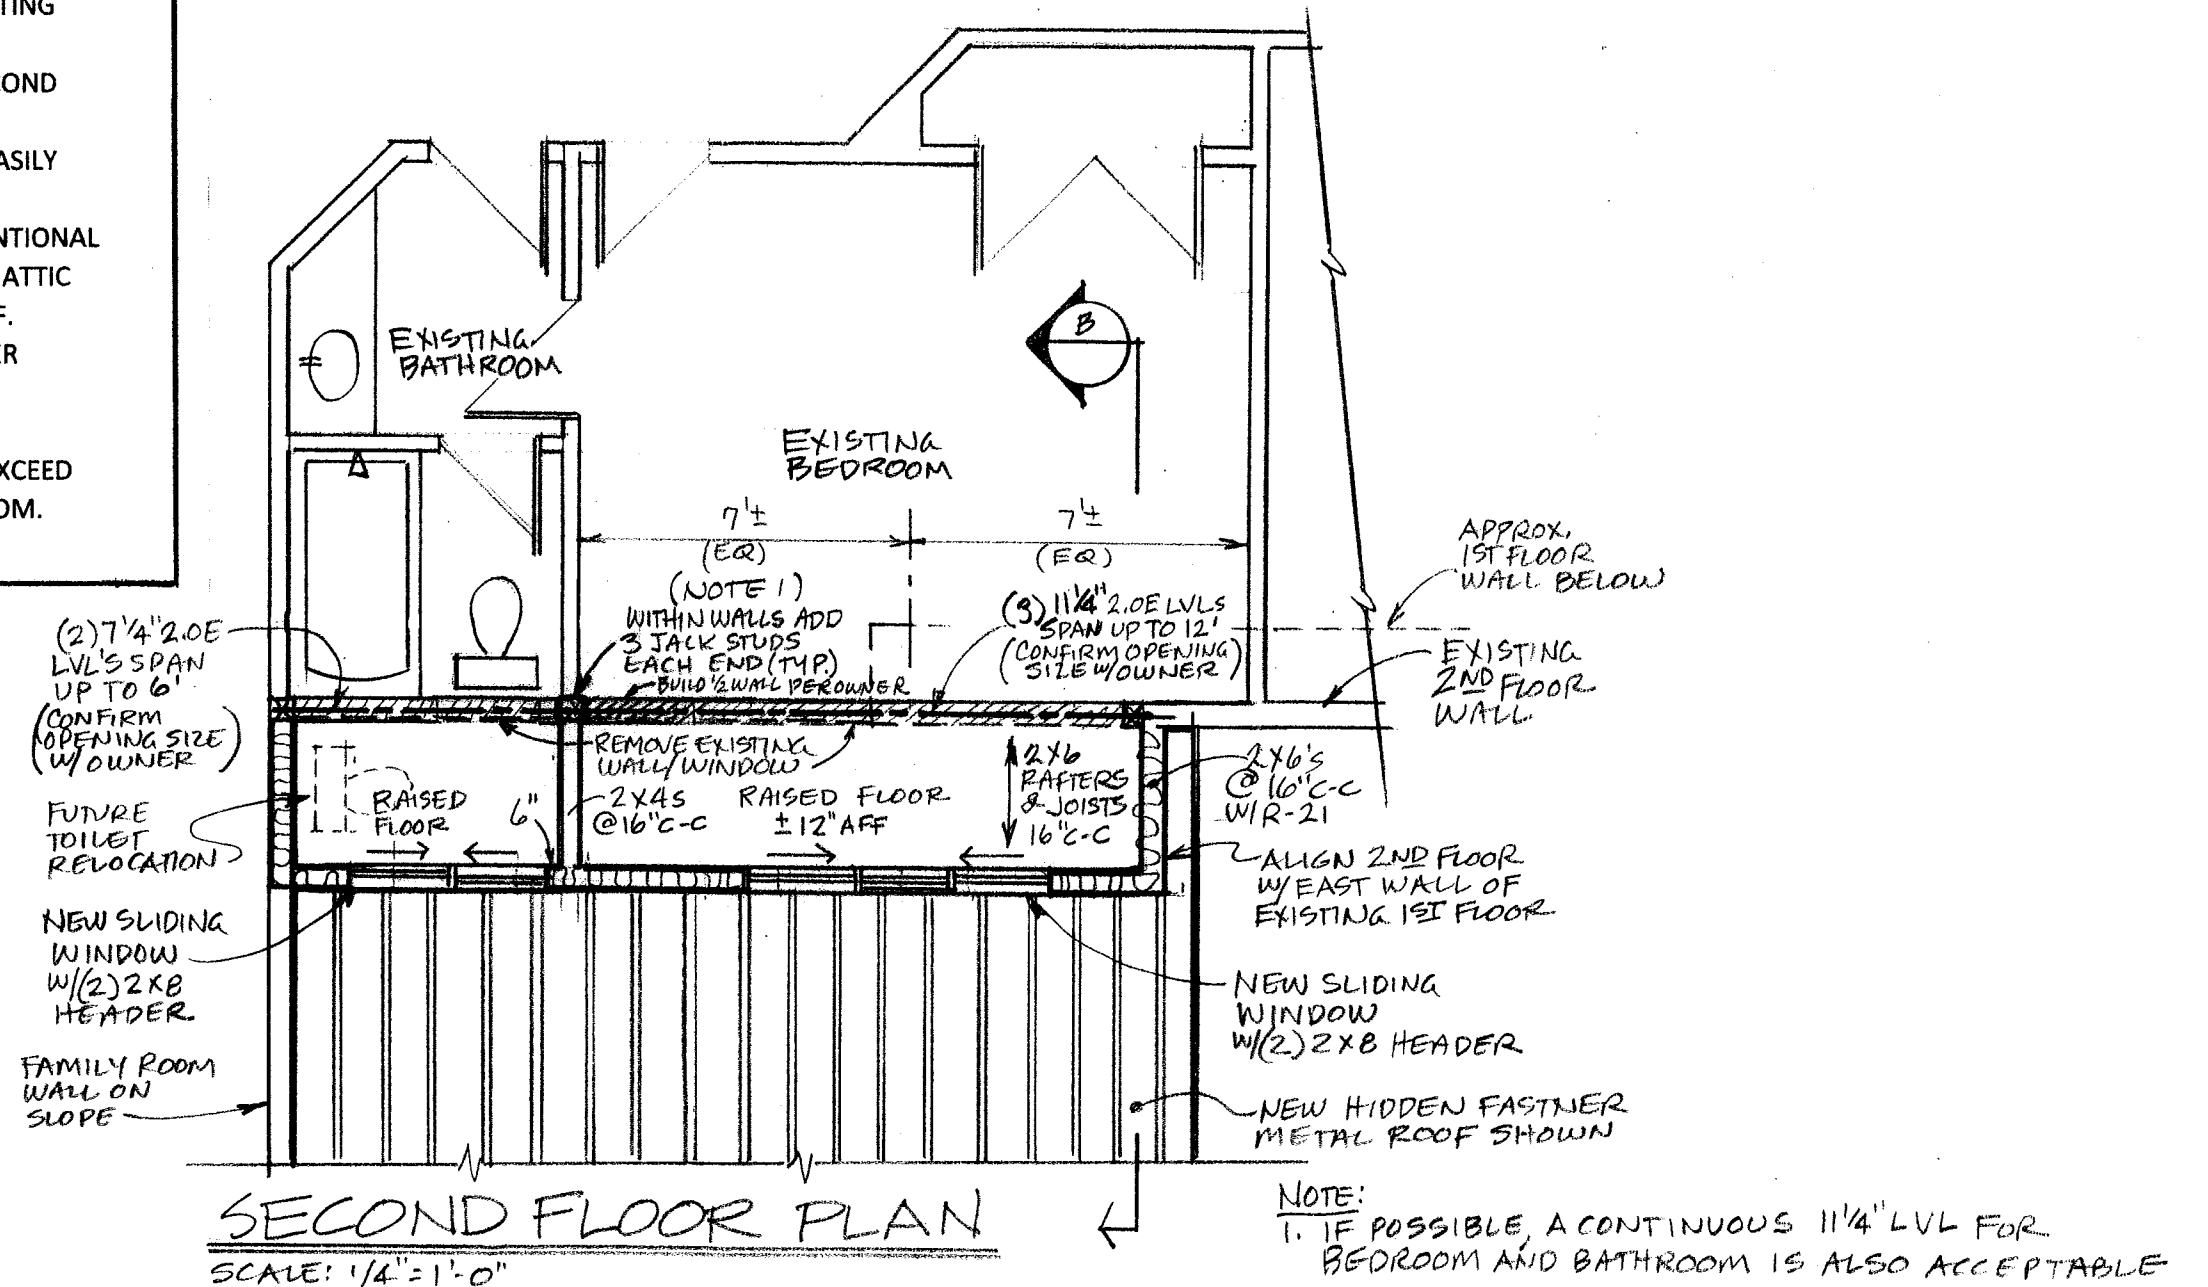 TING
COND
ASILY
NTIONAL
ATTIC
F.
ER
XCEED
OM.
EXISTING
BATHROOM
B
EXISTING
BEDROOM
7'±
(EQ)
7'±
(EQ)
(NOTE 1)
WITHIN WALLS ADD
3 JACK STUDS
EACH END (TYP.)
BUILD 1/2 WALL PER OWNER
(3) 11 1/4" 2.0E LVLS
SPAN UP TO 12'
(CONFIRM OPENING
SIZE W/OWNER)
APPROX.
1ST FLOOR
WALL BELOW
EXISTING
2ND FLOOR
WALL
(2) 7 1/4" 2.0E
LVL'S SPAN
UP TO 6'
(CONFIRM
OPENING SIZE
W/OWNER)
REMOVE EXISTING
WALL/WINDOW
FUTURE
TOILET
RELOCATION
RAISED
FLOOR
6"
2X4S
@16"C-C
RAISED FLOOR
±12"AFF
2X6
RAFTERS
& JOISTS
16"C-C
2X6'S
@16"C-C
W/R-21
ALIGN 2ND FLOOR
W/EAST WALL OF
EXISTING 1ST FLOOR
NEW SLIDING
WINDOW
W/(2) 2X8
HEADER
NEW SLIDING
WINDOW
W/(2) 2X8 HEADER
FAMILY ROOM
WALL ON
SLOPE
NEW HIDDEN FASTNER
METAL ROOF SHOWN
SECOND FLOOR PLAN
SCALE: 1/4"=1'-0"
NOTE:
1. IF POSSIBLE, A CONTINUOUS 11 1/4" LVL FOR
BEDROOM AND BATHROOM IS ALSO ACCEPTABLE